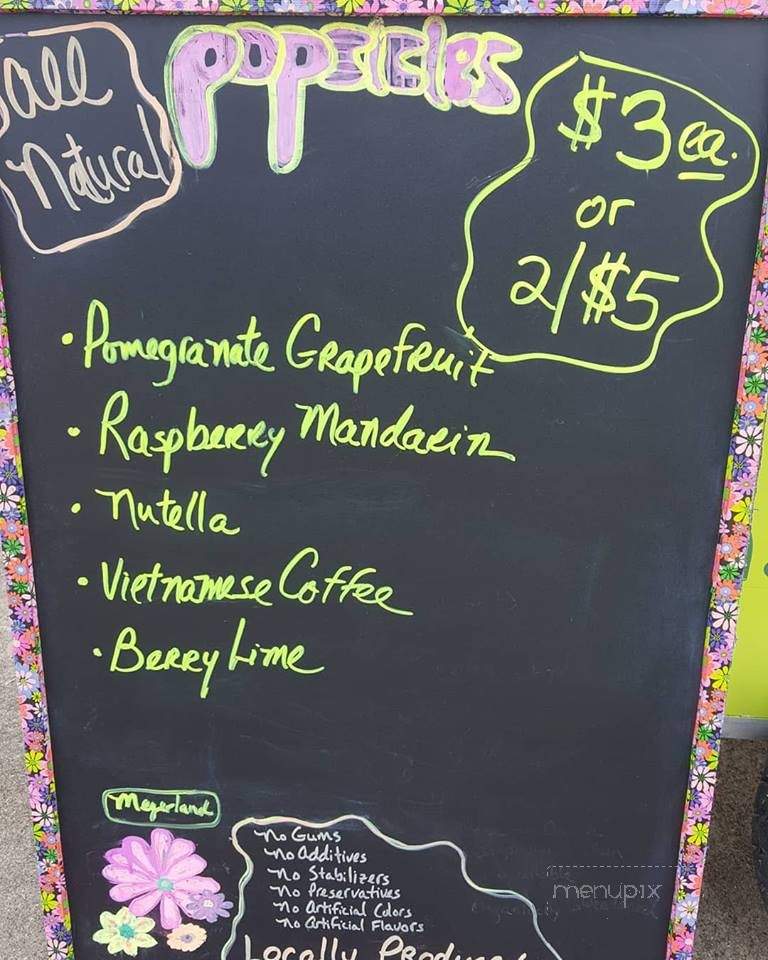 all
Natural
popsicles
$3 ea.
or
2/$5
• Pomegranate Grapefruit
• Raspberry Mandarin
• Nutella
• Vietnamese Coffee
• Berry Lime
Meyerland
No Gums
No Additives
No Stabilizers
No Preservatives
No Artificial Colors
No Artificial Flavors
Locally Produced
menupix